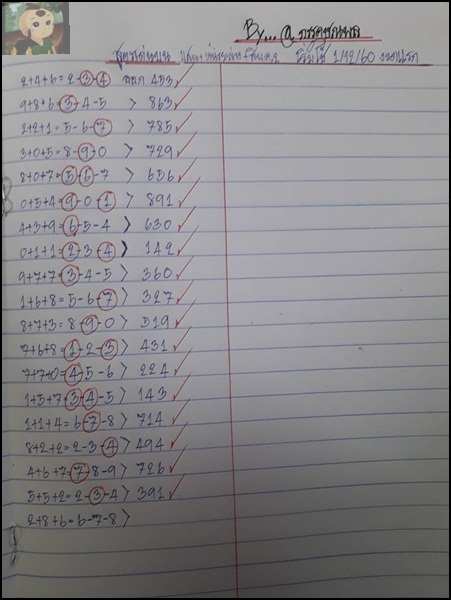 By... @
สูตรเด่นบน เริ่มใช้ 1/12/60 งวดแรก
2+4+6=2-3-4 ออก 453
9+8+6=3-4-5 > 863
2+2+1=5-6-7 > 785
3+0+5=8-9-0 > 729
8+0+7=5-6-7 > 656
0+5+4=9-0-1 > 891
4+3+9=6-5-4 > 630
0+1+1=2-3-4 > 142
9+7+7=3-4-5 > 360
1+6+8=5-6-7 > 327
8+7+3=8-9-0 > 519
7+6+8=1-2-3 > 431
7+7+0=4-5-6 > 224
1+5+7=3-4-5 > 143
1+1+4=6-7-8 > 714
8+2+2=2-3-4 > 494
4+6+7=7-8-9 > 726
5+5+2=2-3-4 > 391
2+8+6=6-7-8 >